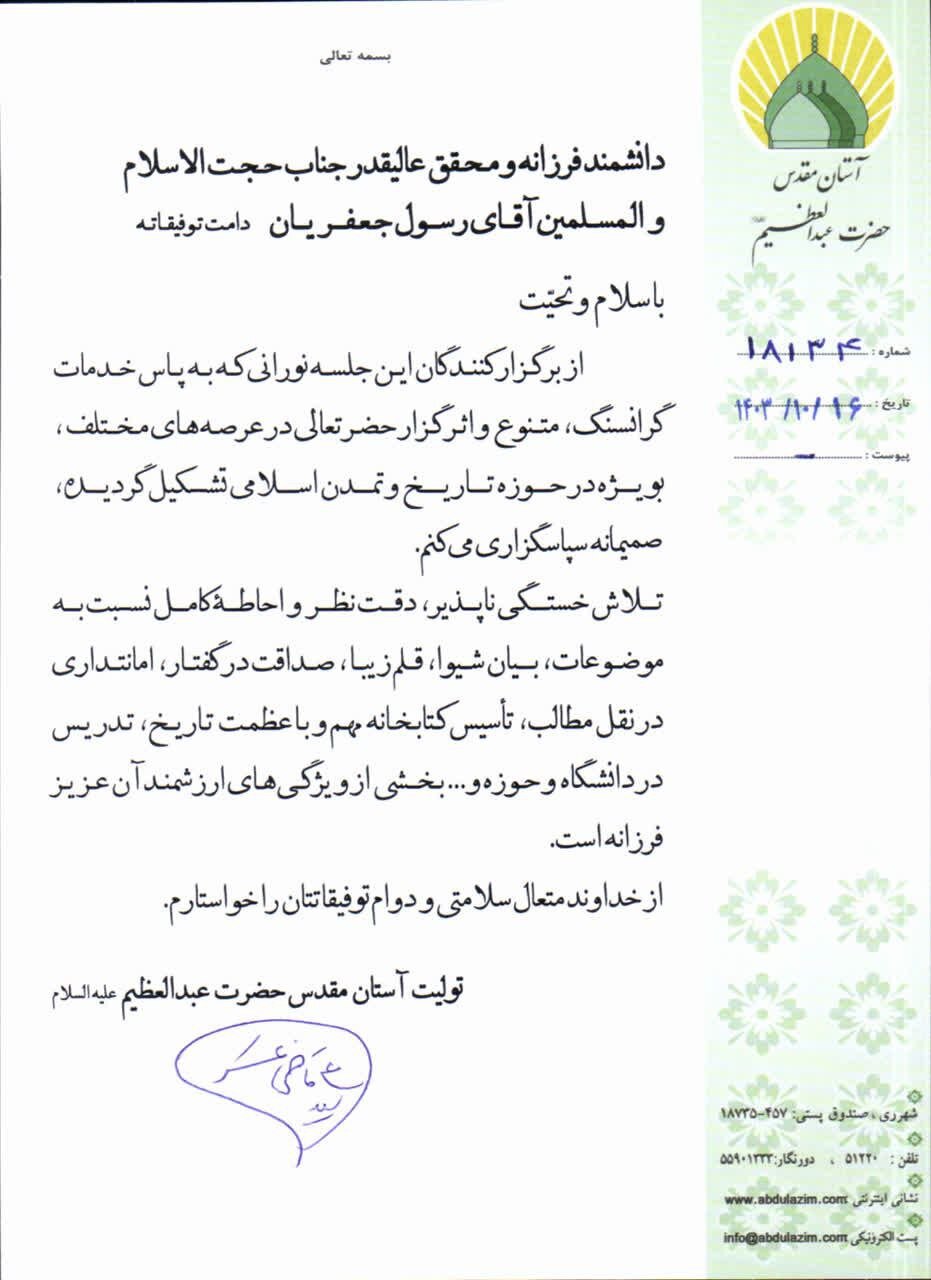 بسمه تعالی
آستان مقدس
حضرت عبدالعظیم
شماره : ۱۸۱۳۴
تاریخ : ۱۴۰۳/۱۰/۱۶
پیوست : ــ
دانشمند فرزانه و محقق عالیقدر جناب حجت الاسلام
و المسلمین آقای رسول جعفریان دامت توفیقاته
با سلام و تحیّت
از برگزارکنندگان این جلسه نورانی که به پاس خدمات
گرانسنگ، متنوع و اثرگزار حضرتعالی در عرصه های مختلف،
بویژه در حوزه تاریخ و تمدن اسلامی تشکیل گردیده،
صمیمانه سپاسگزاری می کنم.
تلاش خستگی ناپذیر، دقت نظر و احاطهٔ کامل نسبت به
موضوعات، بیان شیوا، قلم زیبا، صداقت در گفتار، امانتداری
در نقل مطالب، تأسیس کتابخانه مهم و با عظمت تاریخ، تدریس
در دانشگاه و حوزه و... بخشی از ویژگی های ارزشمند آن عزیز
فرزانه است.
از خداوند متعال سلامتی و دوام توفیقاتتان را خواستارم.
تولیت آستان مقدس حضرت عبدالعظیم علیه السلام
سید علی قاضی عسکر
شهرری ، صندوق پستی: ۴۵۷-۱۸۷۳۵
تلفن : ۵۱۲۲۰ ، دورنگار: ۵۵۹۰۱۳۳۳
نشانی اینترنتی: www.abdulazim.com
پست الکترونیکی: info@abdulazim.com